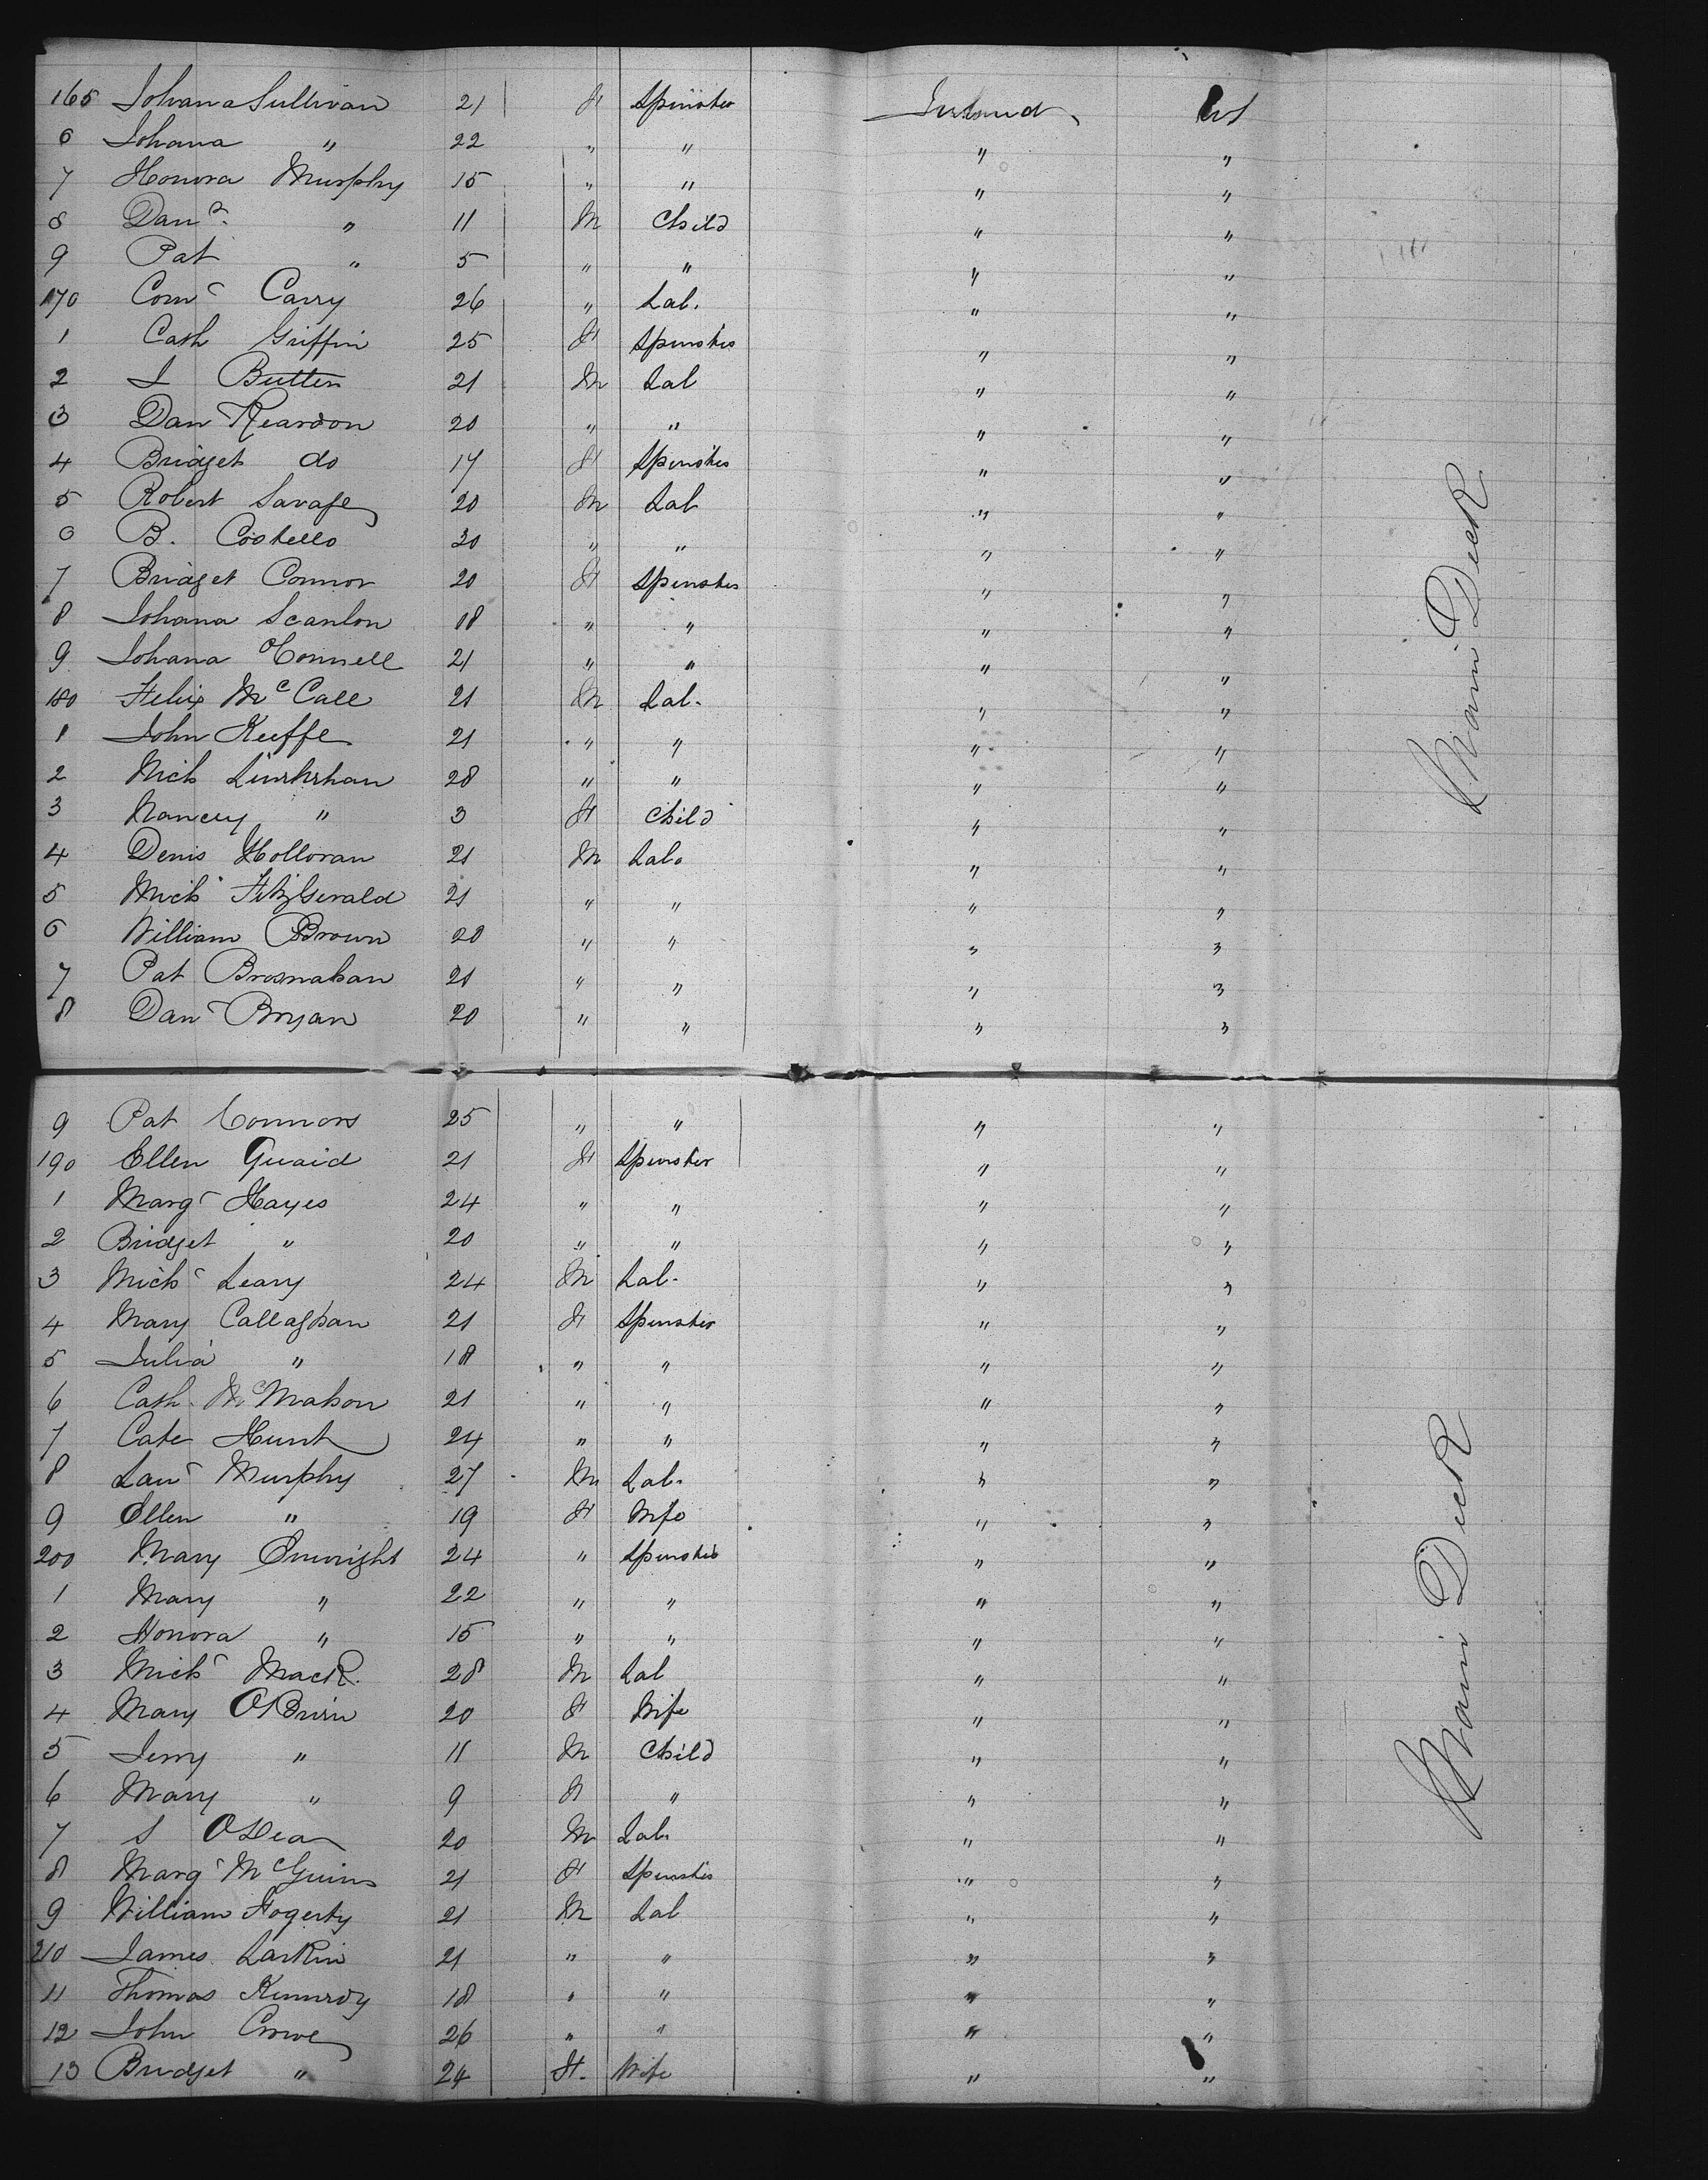 165 Johana Sullivan 21 F Spinster Ireland US
6 Johana " 22 " " " "
7 Honora Murphy 15 " " " "
8 Danl. " 11 M Child " "
9 Pat " 5 " " " "
170 Corns Carry 26 " Lab. " "
1 Cath Griffin 25 F Spinster " "
2 J Butler 21 M Lab " "
3 Dan Reardon 20 " " " "
4 Bridget do 17 F Spinster " "
5 Robert Savage 20 M Lab " "
6 B. Costello 30 " " " "
7 Bridget Connor 20 F Spinster " "
8 Johana Scanlon 18 " " " "
9 Johana OConnell 21 " " " "
180 Felix McCall 21 M Lab. " "
1 John Keeffe 21 " " " "
2 Mich 28 " " " "
3 Nancey " 3 F Child " "
4 Denis Holloran 21 M Lab. " "
5 Mich FitzGerald 21 " " " "
6 William Brown 20 " " " "
7 Pat Brosnahan 21 " " " "
8 Dan Bryan 20 " " " "
Main Deck
9 Pat Connors 25 " " " "
190 Ellen Quaid 21 F Spinster " "
1 Marg Hayes 24 " " " "
2 Bridget " 20 " " " "
3 Mich Leary 24 M Lab. " "
4 Mary Callaghan 21 F Spinster " "
5 Julia " 18 " " " "
6 Cath. McMahon 21 " " " "
7 Cate Hunt 24 " " " "
8 Law Murphy 27 M Lab. " "
9 Ellen " 19 F Wife " "
200 Mary Enwright 24 " Spinster " "
1 Mary " 22 " " " "
2 Honora " 15 " " " "
3 Mich Mack. 28 M Lab " "
4 Mary OBrien 20 F Wife " "
5 Jerry " 11 M Child " "
6 Mary " 9 F " " "
7 S ODea 20 M Lab. " "
8 Marg McGuins 21 F Spinster " "
9 William Fogerty 21 M Lab " "
210 James Larkin 21 " " " "
11 Thomas Kennedy 18 " " " "
12 John Crowe 26 " " " "
13 Bridget " 24 F. Wife " "
Main Deck